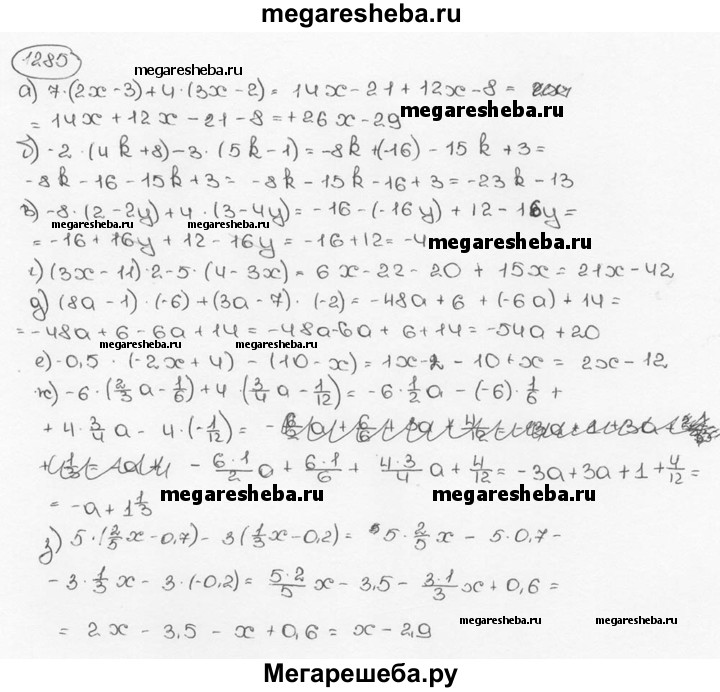 megaresheba.ru
1285
megaresheba.ru
а) 7·(2x-3)+4·(3x-2)= 14x-21+12x-8=
= 14x+12x-21-8=+26x-29
megaresheba.ru
б) -2·(4k+8)-3·(5k-1)=-8k+(-16)-15k+3=
-8k-16-15k+3= -8k-15k-16+3=-23k-13
в) -8·(2-2y)+4·(3-4y)=-16-(-16y)+12-16y=
=-16+16y+12-16y=-16+12=-4
megaresheba.ru
г) (3x-11)·2-5·(4-3x)=6x-22-20+15x=21x-42
д) (8a-1)·(-6)+(3a-7)·(-2)=-48a+6+(-6a)+14=
=-48a+6-6a+14=-48a-6a+6+14=-54a+20
е) -0,5·(-2x+4)-(10-x)=1x-2-10+x=2x-12
ж) -6·(2/3 a-1/6)+4·(3/4 a-1/12)=-6·1/2 a-(-6)·1/6+
+4·3/4 a-4·(-1/12)=
-6·1/2 a+6·1/6+4·3/4 a+4/12=-3a+3a+1+4/12=
=-a+1 1/3
megaresheba.ru
megaresheba.ru
з) 5·(2/5 x-0,7)-3(1/3 x-0,2)= 5·2/5 x-5·0,7-
-3·1/3 x-3·(-0,2)=5·2/5 x-3,5-3·1/3 x+0,6=
=2x-3,5-x+0,6=x-2,9
megaresheba.ru
Мегарешеба.ру